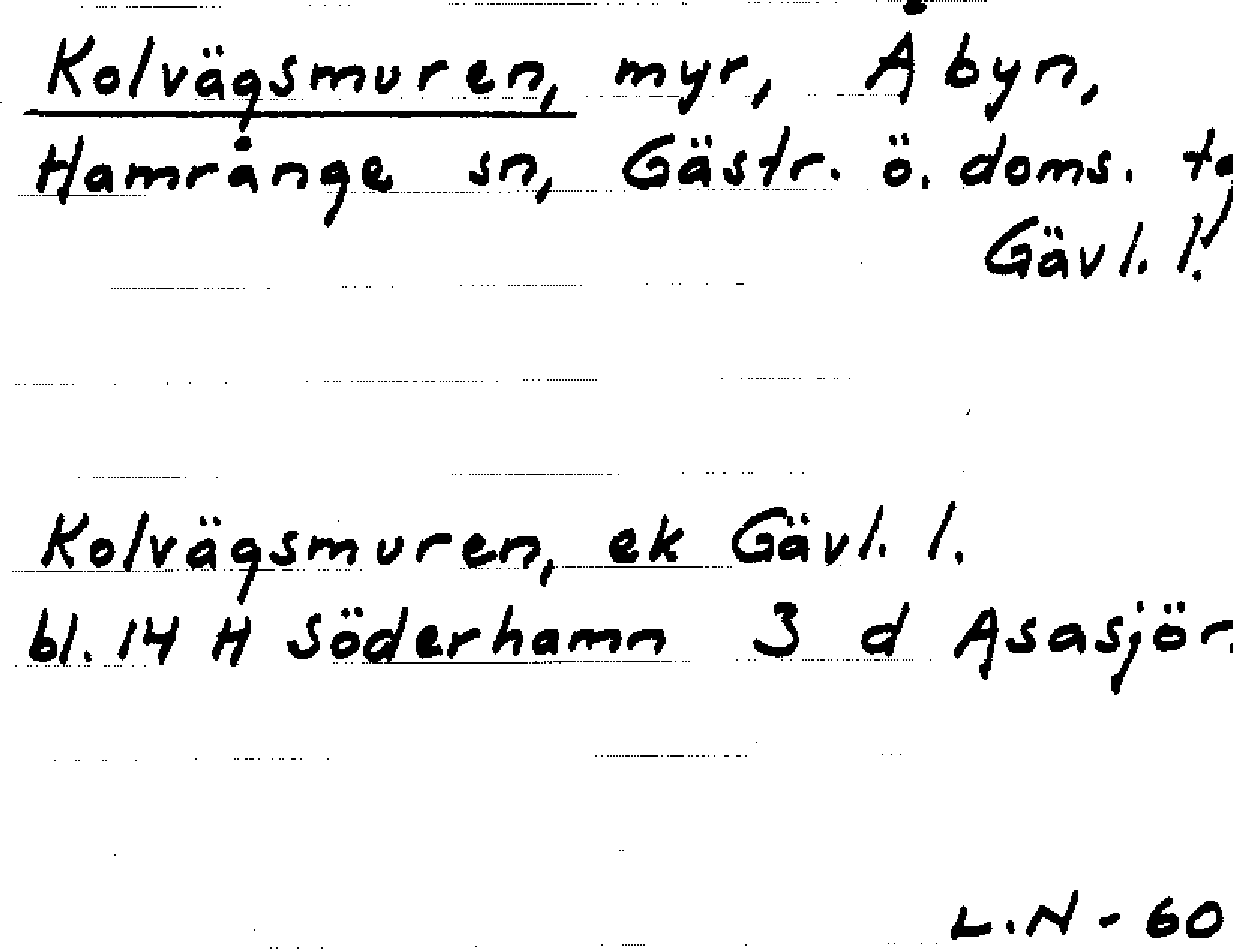 Kolvägsmuren, myr, Åbyn,
Hamrånge sn, Gästr. ö. doms. tg
Gävl. l.
Kolvägsmuren, ek Gävl. l.
bl. 14 H Söderhamn 3 d Asasjön
L.N - 60